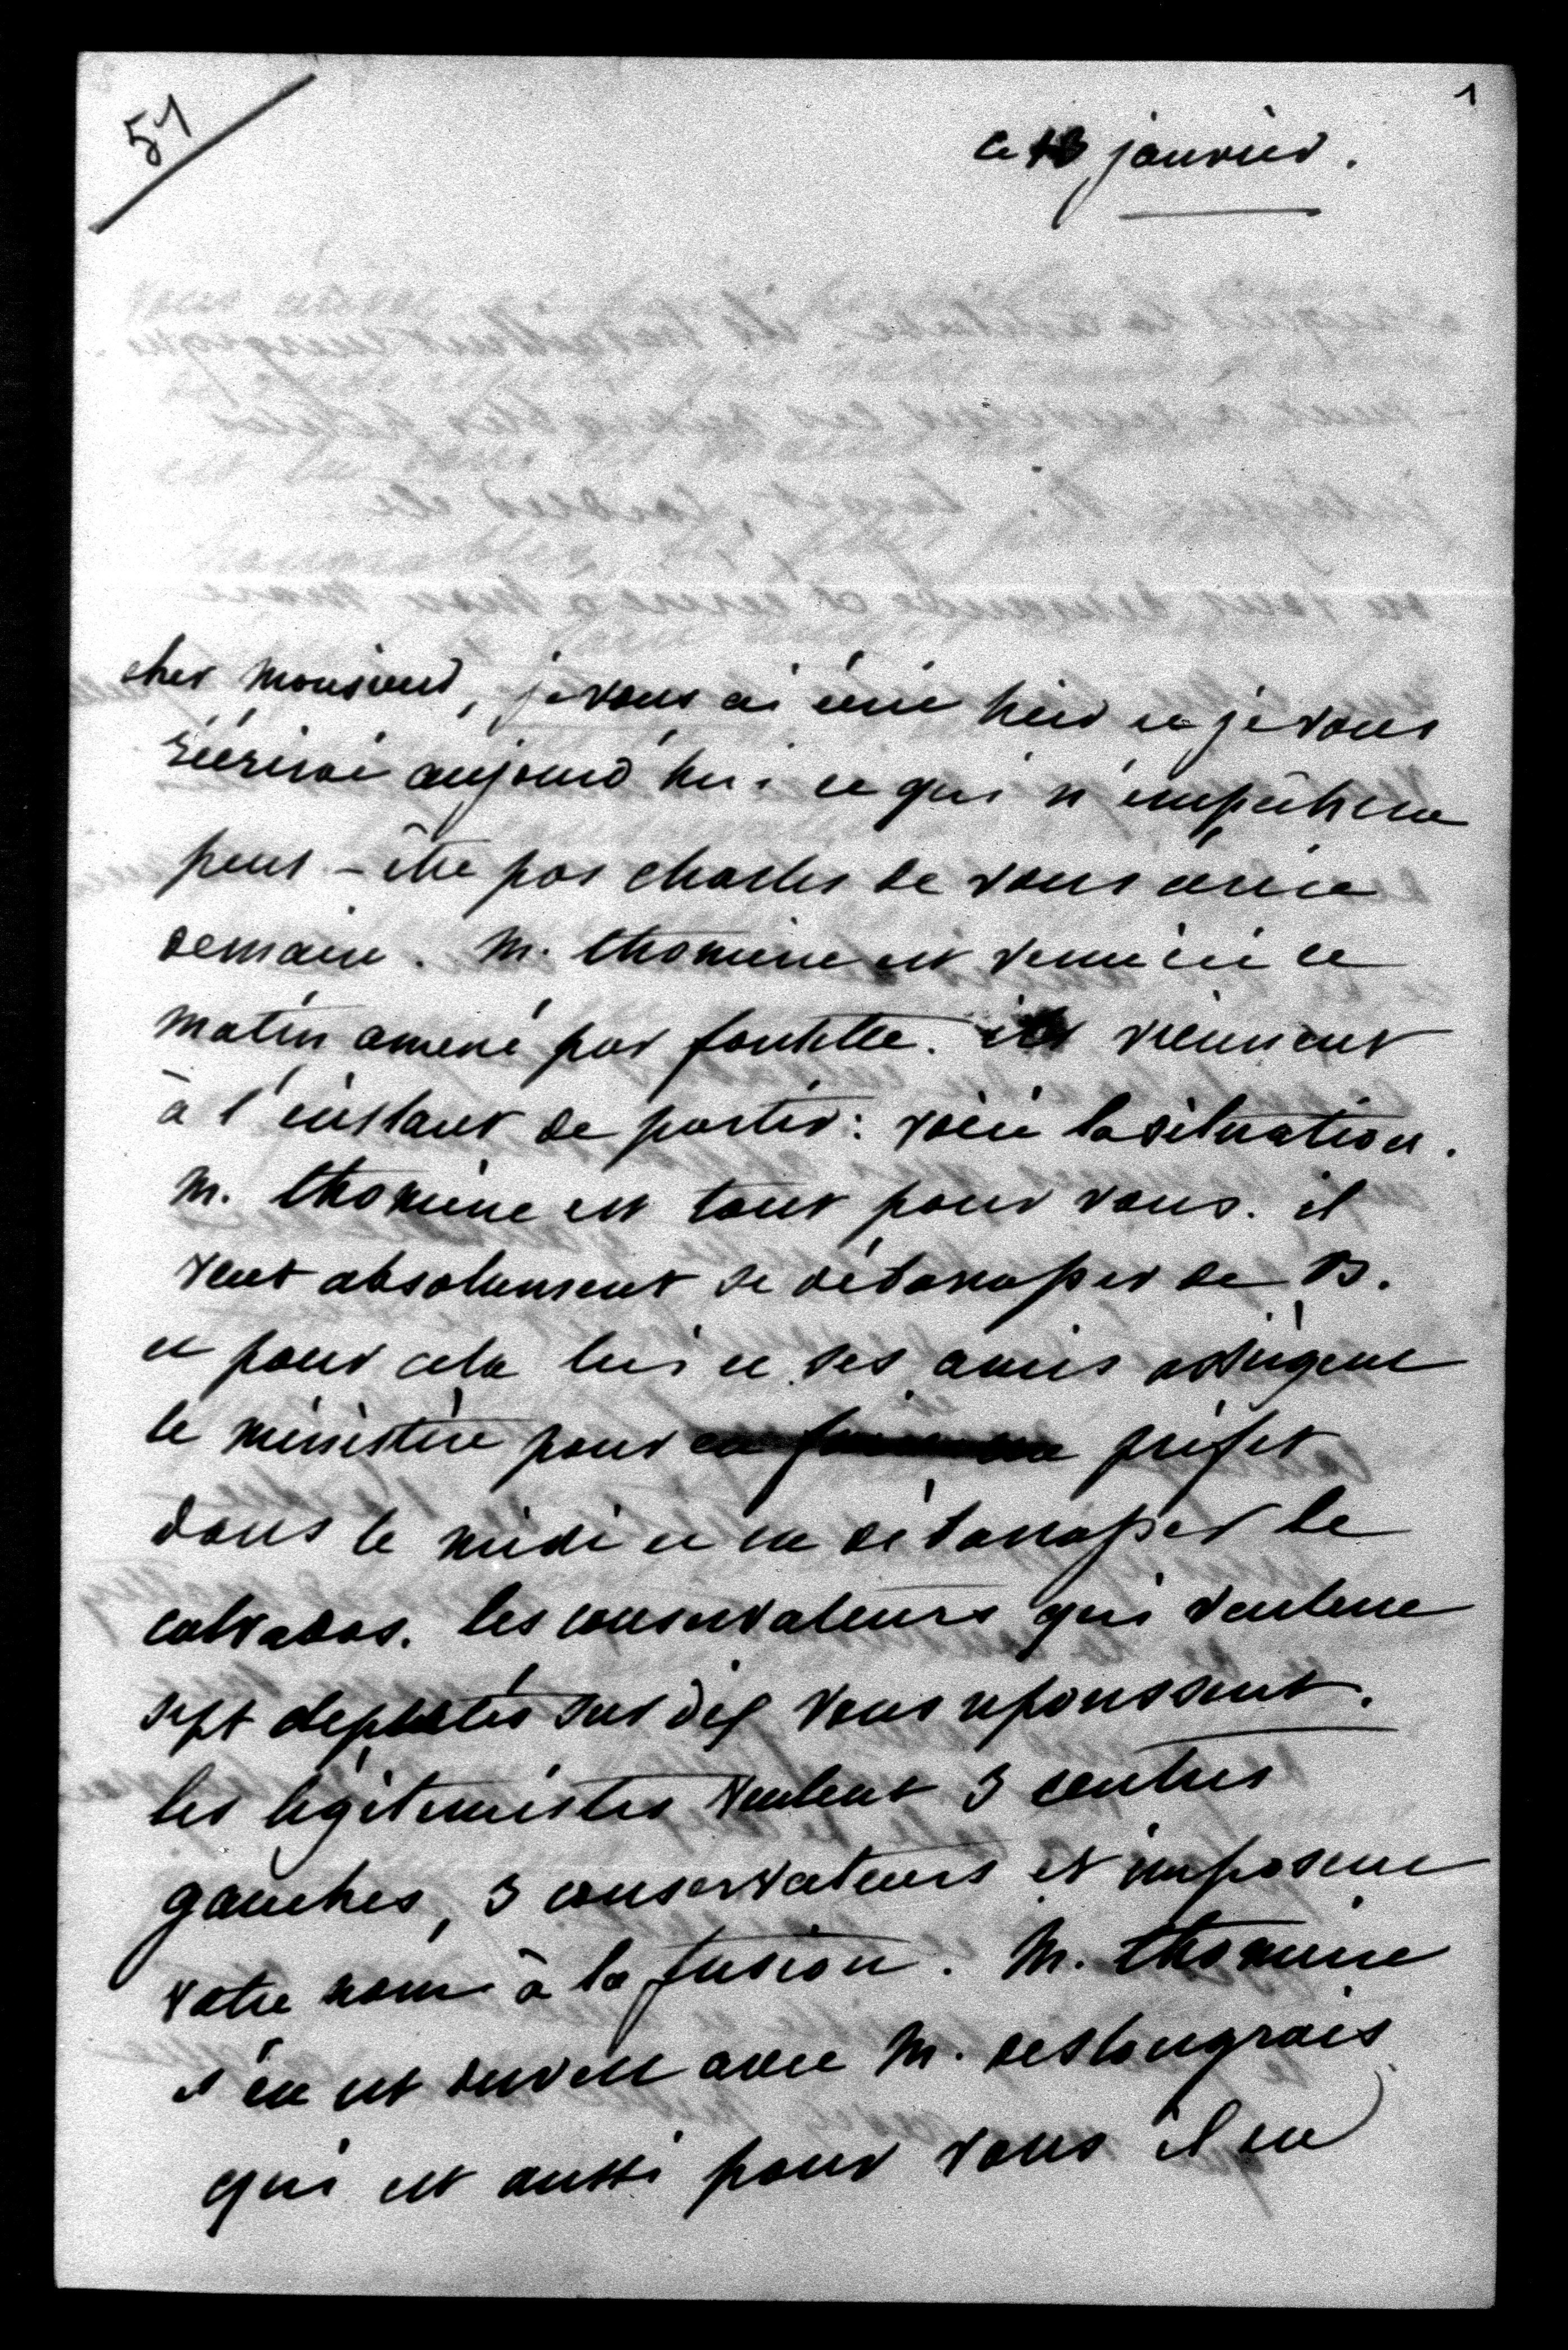 51
1
ce 13 janvier.
cher monsieur, je vous ai écrit hier et je vous
récrirai aujourd'hui ce qui n'empêchera
peut-être pas charles de vous écrire
demain. M. thomine est venu ici ce
matin amené par fontette. ils viennent
à l'instant de partir: voici la situation.
M. thomine est tout pour vous. il
veut absolument se débarrasser de B.
et pour cela lui et ses amis assiègent
le ministère pour préfet
dans le midi et en débarrasser le
calvados. les conservateurs qui veulent
sept députés sur dix vous repoussent.
les légitimistes veulent 3 centres
gauches, 3 conservateurs et imposent
votre nom à la fusion. M. thomine
s'en est ouvert avec M. deslongrais
qui est aussi pour vous il en